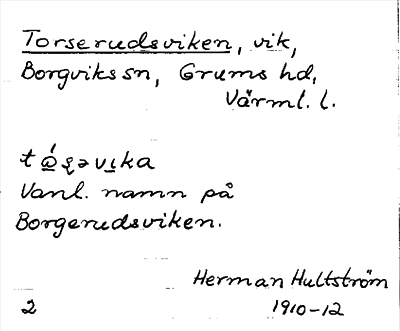 Torserudsviken, vik,
Borgviks sn, Grums hd,
Värml. l.
Vanl. namn på
Borgerudsviken.
Herman Hultström
2 1910-12